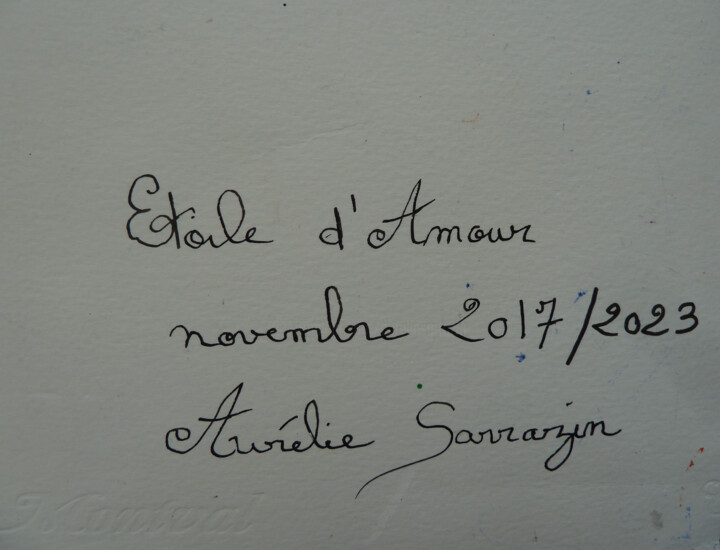 Etoile d'Amour
novembre 2017/2023
Aurélie Sarrazin
Montval